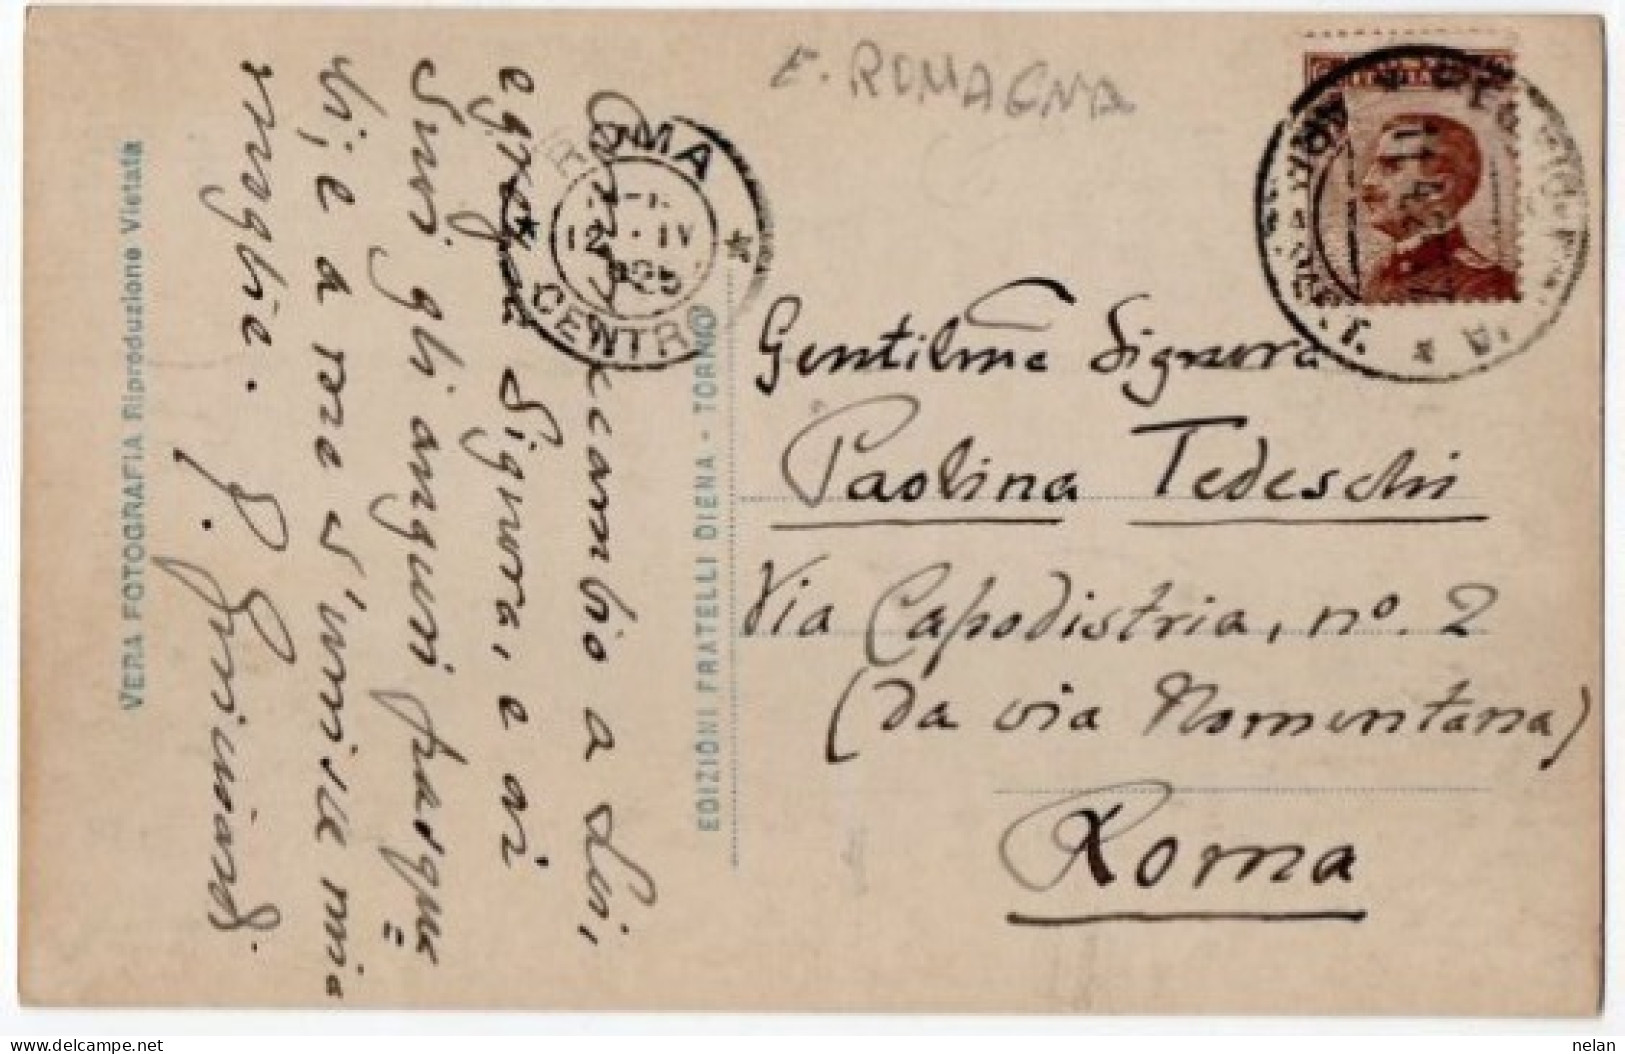 E. ROMAGNA
Contraccambio a Lei,
egregia Signora, e ai
Suoi gli auguri pasqua
li, e a me s'unisce mia
moglie.
VERA FOTOGRAFIA Riproduzione Vietata
EDIZIONI FRATELLI DIENA - TORINO
ROMA
12 · IV
CENTRO
Gentilma Signora
Paolina Tedeschi
Via Capodistria, nº. 2
(da via Nomentana)
Roma
nelan
delcampe.net